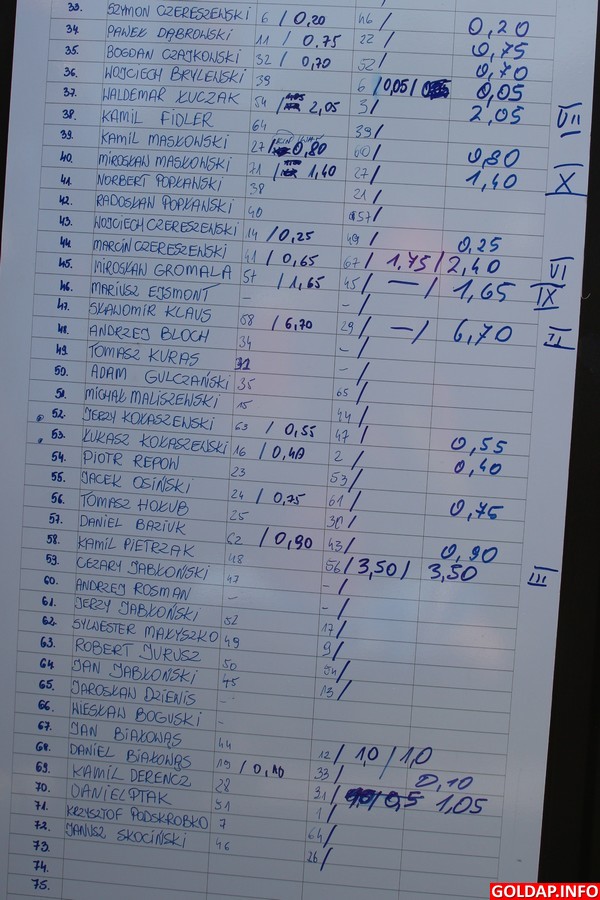 33. SZYMON CZERESZEWSKI 6 / 0,20 46 / 0,20
34. PAWEŁ DĄBROWSKI 11 / 0.75 22 / 0,75
35. BOGDAN CZAJKOWSKI 32 / 0,70 52 / 0,70
36. WOJCIECH BRYLEŃSKI 39 6 / 0,05 / 0,05
37. WALDEMAR ŁUCZAK 54 / 2,05 3 / 2,05 VII
38. KAMIL FIDLER 64 39 /
39. KAMIL MASŁOWSKI 27 / 0,80 60 / 0,80
40. MIROSŁAW MASŁOWSKI 71 / 1,40 27 / 1,40 X
41. NORBERT POPŁAWSKI 38 21 /
42. RADOSŁAW POPŁAWSKI 40 57 /
43. WOJCIECH CZERESZEWSKI 14 / 0,25 49 / 0,25
44. MARCIN CZERESZEWSKI 41 / 0,65 67 / 1,75 / 2,40 VI
45. MIROSŁAW GROMALA 57 / 1,65 45 / — / 1,65 IX
46. MARIUSZ EJSMONT - - /
47. SŁAWOMIR KLAUS 58 / 6,70 29 / — / 6,70 II
48. ANDRZEJ BLOCH 34 - /
49. TOMASZ KURAS - /
50. ADAM GULCZAŃSKI 35 65 /
51. MICHAŁ MALISZEWSKI 15 44 /
52. JERZY KOKASZEWSKI 63 / 0,55 47 / 0,55
53. ŁUKASZ KOKASZEWSKI 16 / 0,40 2 / 0,40
54. PIOTR REPOW 23 53 /
55. JACEK OSIŃSKI 24 / 0,75 61 / 0,75
56. TOMASZ HOŁUB 25 30 /
57. DANIEL BAZIUK 62 / 0,90 43 / 0,90
58. KAMIL PIETRZAK 48 56 / 3,50 / 3,50 III
59. CEZARY JABŁOŃSKI 47 - /
60. ANDRZEJ ROSMAN - - /
61. JERZY JABŁOŃSKI 52 17 /
62. SYLWESTER MAŁYSZKO 49 9 /
63. ROBERT JURUSZ 50 54 /
64. JAN JABŁOŃSKI 45 13 /
65. JAROSŁAW DZIENIS -
66. WIESŁAW BOGUSKI -
67. JAN BIAŁOWĄS 44 12 / 1,0 / 1,0
68. DANIEL BIAŁOWĄS 19 / 0,10 33 / 0,10
69. KAMIL DERENCZ 28 31 / 0,5 1,05
70. DANIEL PTAK 31 1 /
71. KRZYSZTOF PODSKROBKO 7 64 /
72. JANUSZ SKOCIŃSKI 46 26 /
73.
74.
75.
GOLDAP.INFO